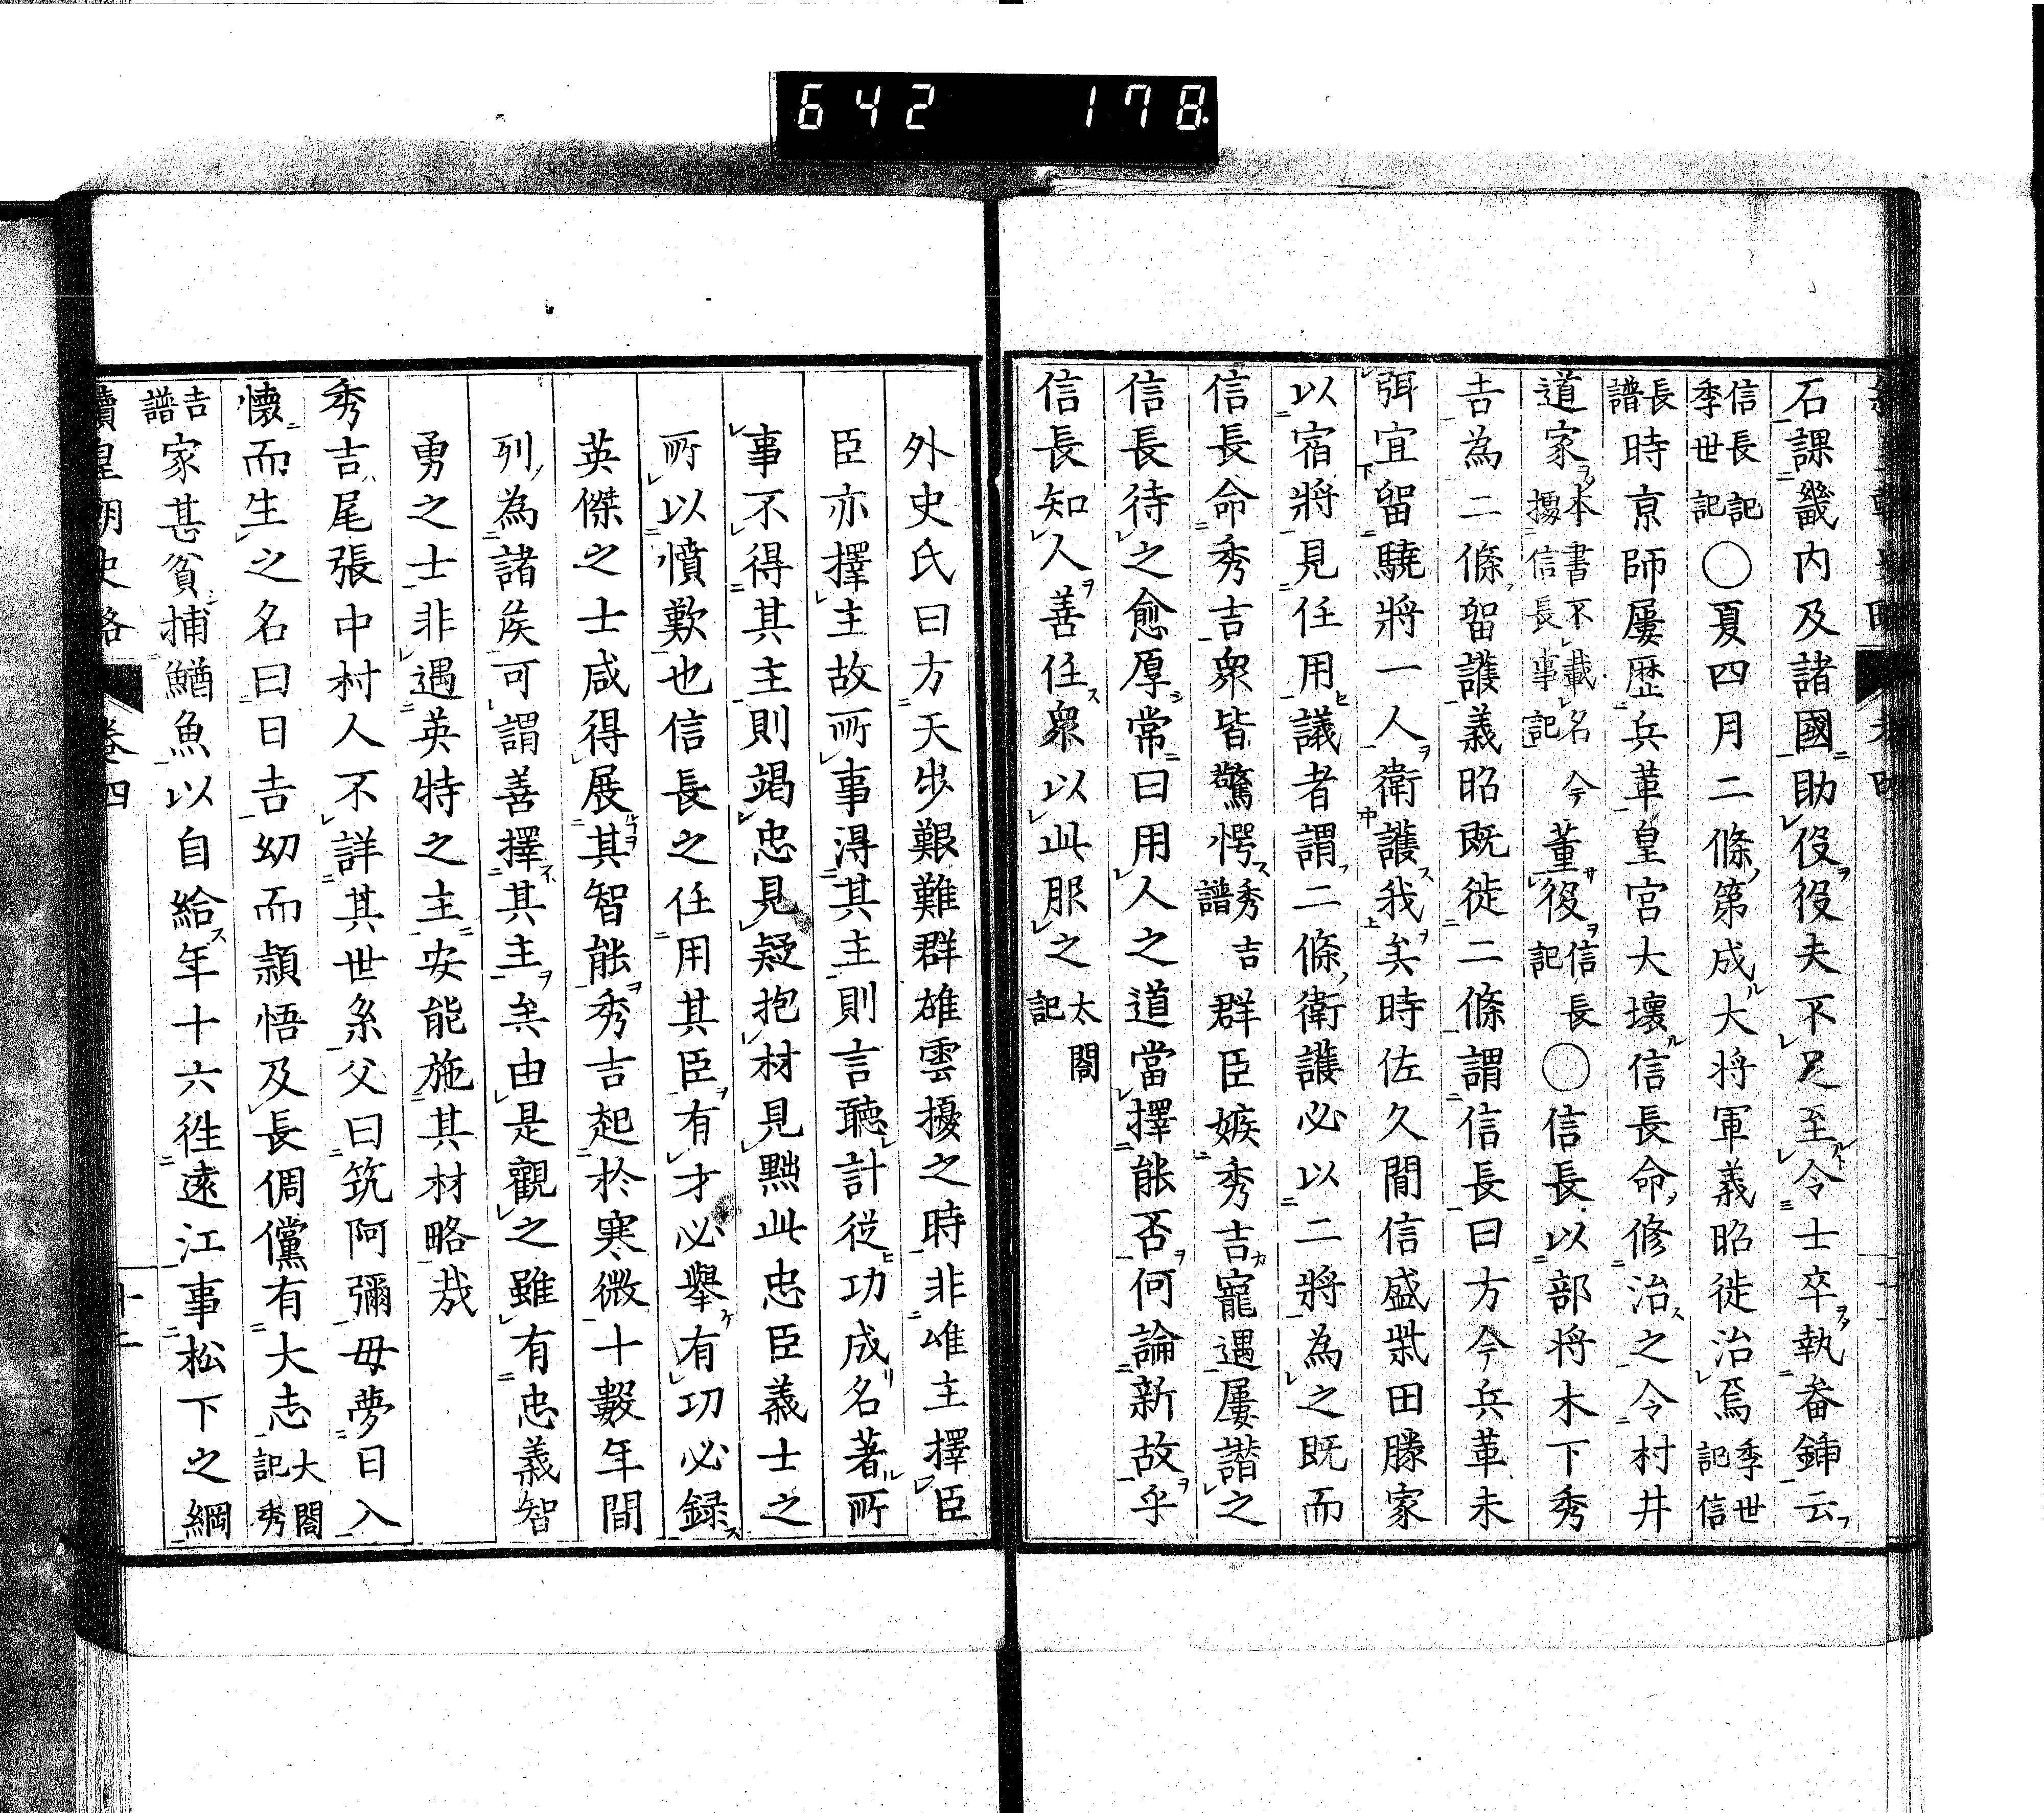 642 178
石課畿内及諸國助役役夫不足至令士卒執畚鍤云
信長記季世記〇夏四月二條第成大将軍義昭徙治焉季世記信
長譜時京師屢歴兵革皇宮大壞信長命修治之令村井
道家本書不載名據信長事記今董役信長記〇信長以部将木下秀
吉為二條留護義昭既徙二條謂信長曰方今兵革未
弭宜留驍將一人衛護我矣時佐久間信盛柴田勝家
以宿將見任用議者謂二條衛護必以二將為之既而
信長命秀吉衆皆驚愕秀吉譜群臣嫉秀吉寵遇屢譖之
信長待之愈厚常曰用人之道當擇能否何論新故乎
信長知人善任衆以此服之太閤記
外史氏曰方天步艱難群雄雲擾之時非唯主擇臣
臣亦擇主故所事得其主則言聽計從功成名著所
事不得其主則竭忠見疑抱材見黜此忠臣義士之
所以憤歎也信長之任用其臣有才必舉有功必録
英傑之士咸得展其智能秀吉起於寒微十數年間
列為諸矦可謂善擇其主矣由是觀之雖有忠義智
勇之士非遇英特之主安能施其材略哉
秀吉尾張中村人不詳其世系父曰筑阿彌母夢日入
懷而生之名曰日吉幼而頴悟及長倜儻有大志大閤記秀
吉譜家甚貧捕鰌魚以自給年十六徃遠江事松下之綱
續皇朝史略 卷四